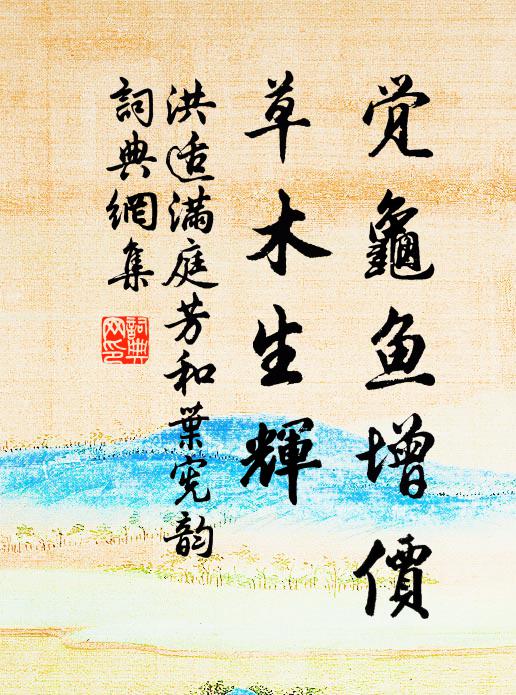 觉龜鱼增價
草木生輝
洪适满庭芳和葉宪韵
詞典網集
詞典
网印